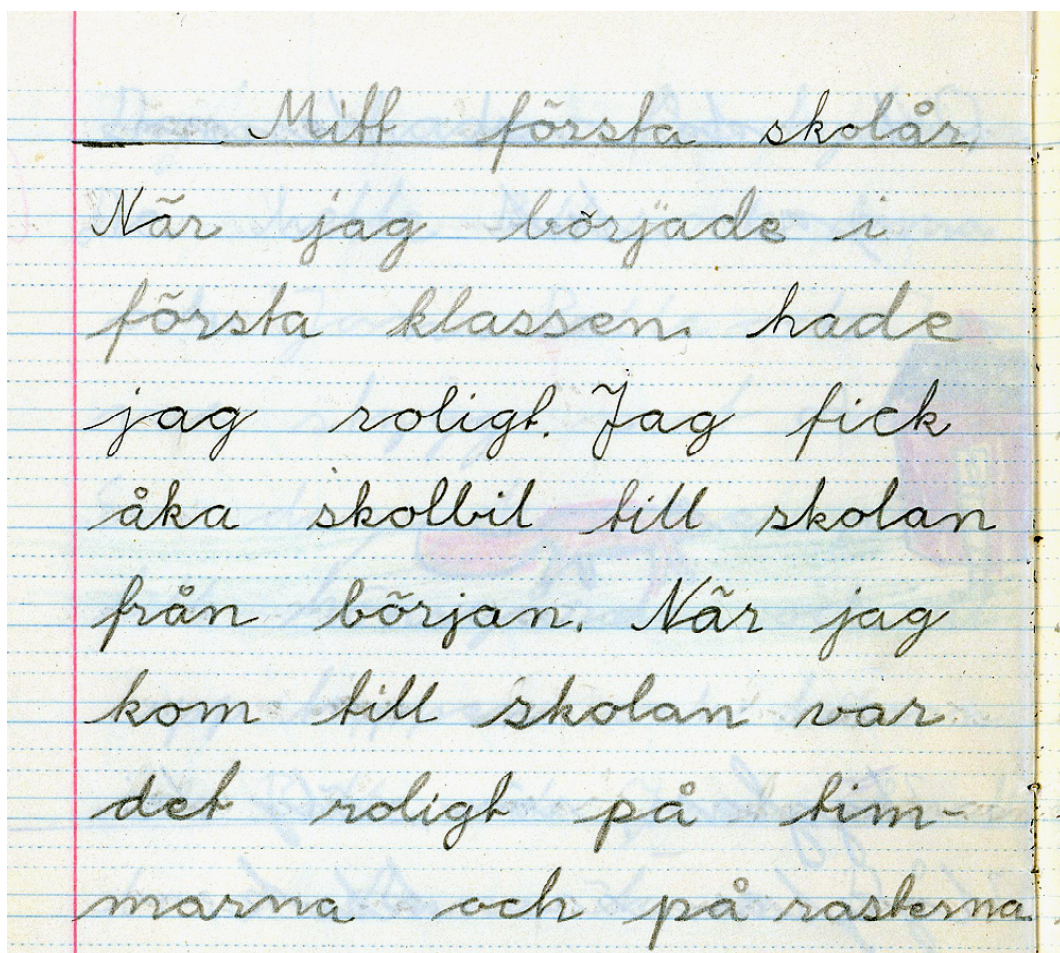 Mitt första skolår.
När jag började i
första klassen. hade
jag roligt. Jag fick
åka skolbil till skolan
från början. När jag
kom till skolan var
det roligt på tim-
marna och på rasterna